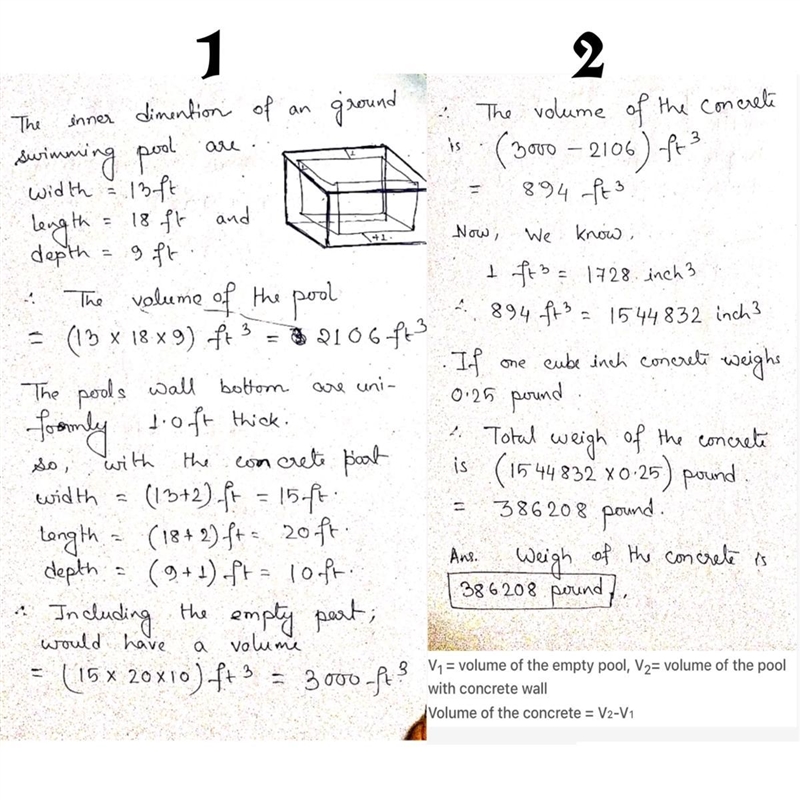 1
The inner dimention of an ground
swimming pool are.
width = 13 ft
length = 18 ft and
depth = 9 ft.
∴ The volume of the pool
= (13 x 18 x 9) ft³ = 2106 ft³
The pools wall bottom are uni-
foormly 1.0 ft thick.
so, with the concrete part
width = (13+2) ft = 15 ft.
length = (18+2) ft = 20 ft.
depth = (9+1) ft = 10 ft.
∴ Including the empty part;
would have a volume
= (15 x 20 x 10) ft³ = 3000 ft³
+1
2
∴ The volume of the concrete
is (3000 - 2106) ft³
= 894 ft³
Now, We know.
1 ft³ = 1728 inch³
∴ 894 ft³ = 1544832 inch³
If one cube inch concrete weighs
0.25 pound.
∴ Total weigh of the concrete
is (1544832 x 0.25) pound.
= 386208 pound.
Ans. Weigh of the concrete is
386208 pound.
V1 = volume of the empty pool, V2= volume of the pool
with concrete wall
Volume of the concrete = V2-V1